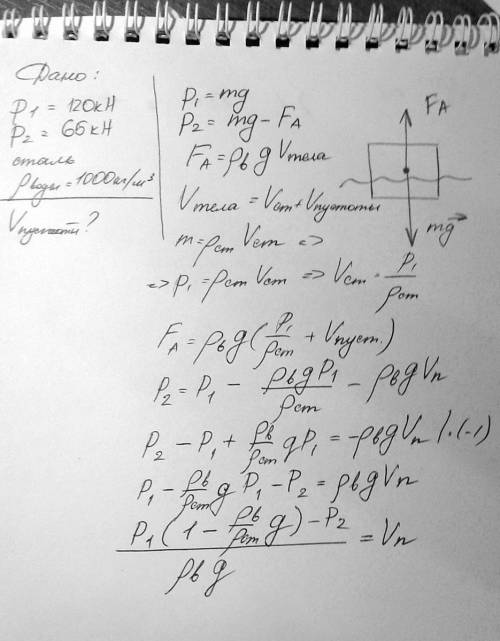 Дано:
P1 = 120кН
P2 = 65кН
сталь
ρводы = 1000кг/м³
Vпустоты?
P1 = mg
P2 = mg - FA
FA = ρв g Vтела
Vтела = Vст + Vпустоты
m = ρст Vст =>
=> P1 = ρст Vст => Vст = P1/ρст
FA
mg
FA = ρв g (P1/ρст + Vпуст.)
P2 = P1 - ρв g P1/ρст - ρв g Vп
P2 - P1 + ρв/ρст g P1 = -ρв g Vп |·(-1)
P1 - ρв/ρст g P1 - P2 = ρв g Vп
P1 (1 - ρв/ρст g) - P2 / ρв g = Vп